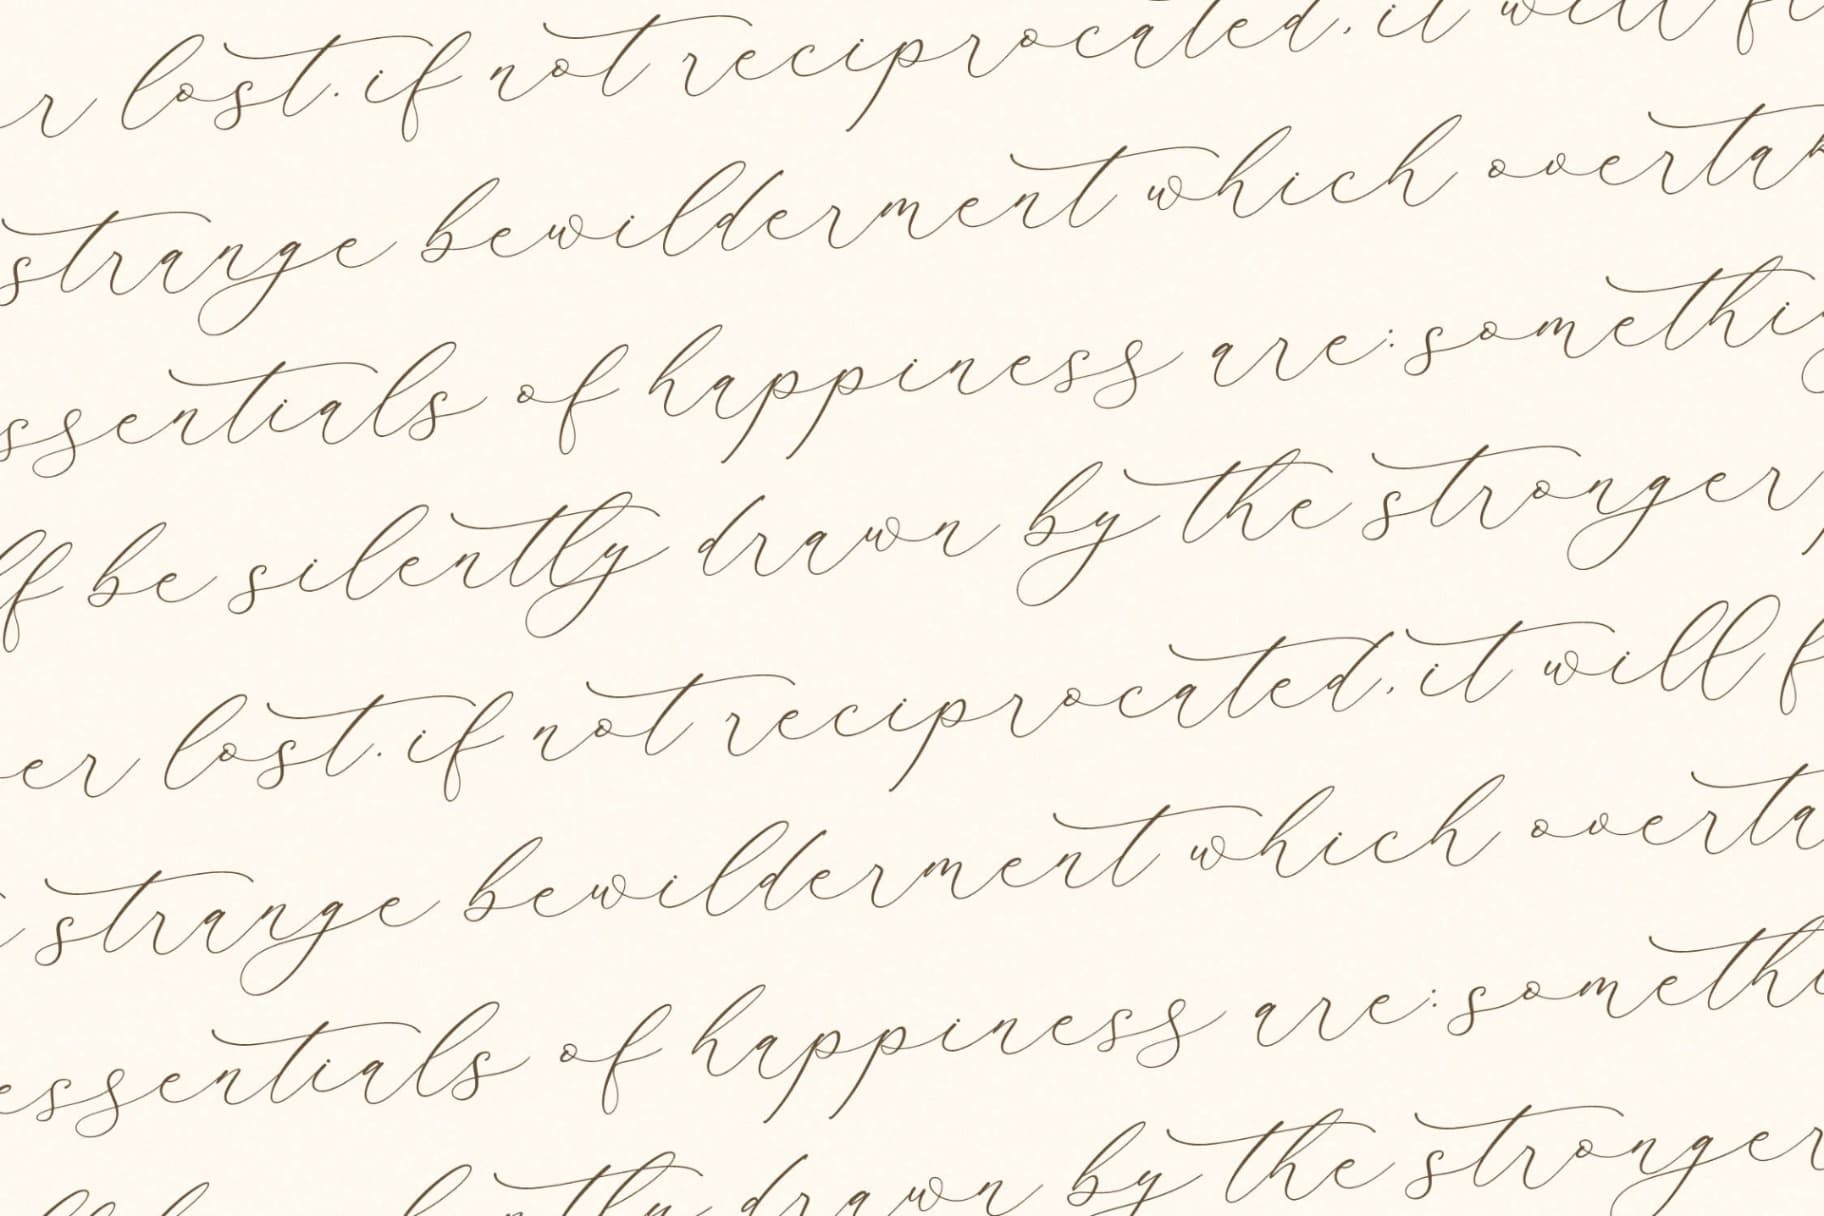 er lost. if not reciprocated, it will fl
strange bewilderment which overtak
ssentials of happiness are: somethi
lf be silently drawn by the stronger
er lost. if not reciprocated, it will f
strange bewilderment which overta
essentials of happiness are: somethi
silently drawn by the stronger